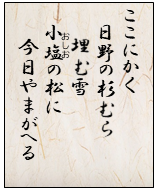 ここにかく
日野の杉むら
埋む雪
小塩の松に
おしお
今日やまがへる